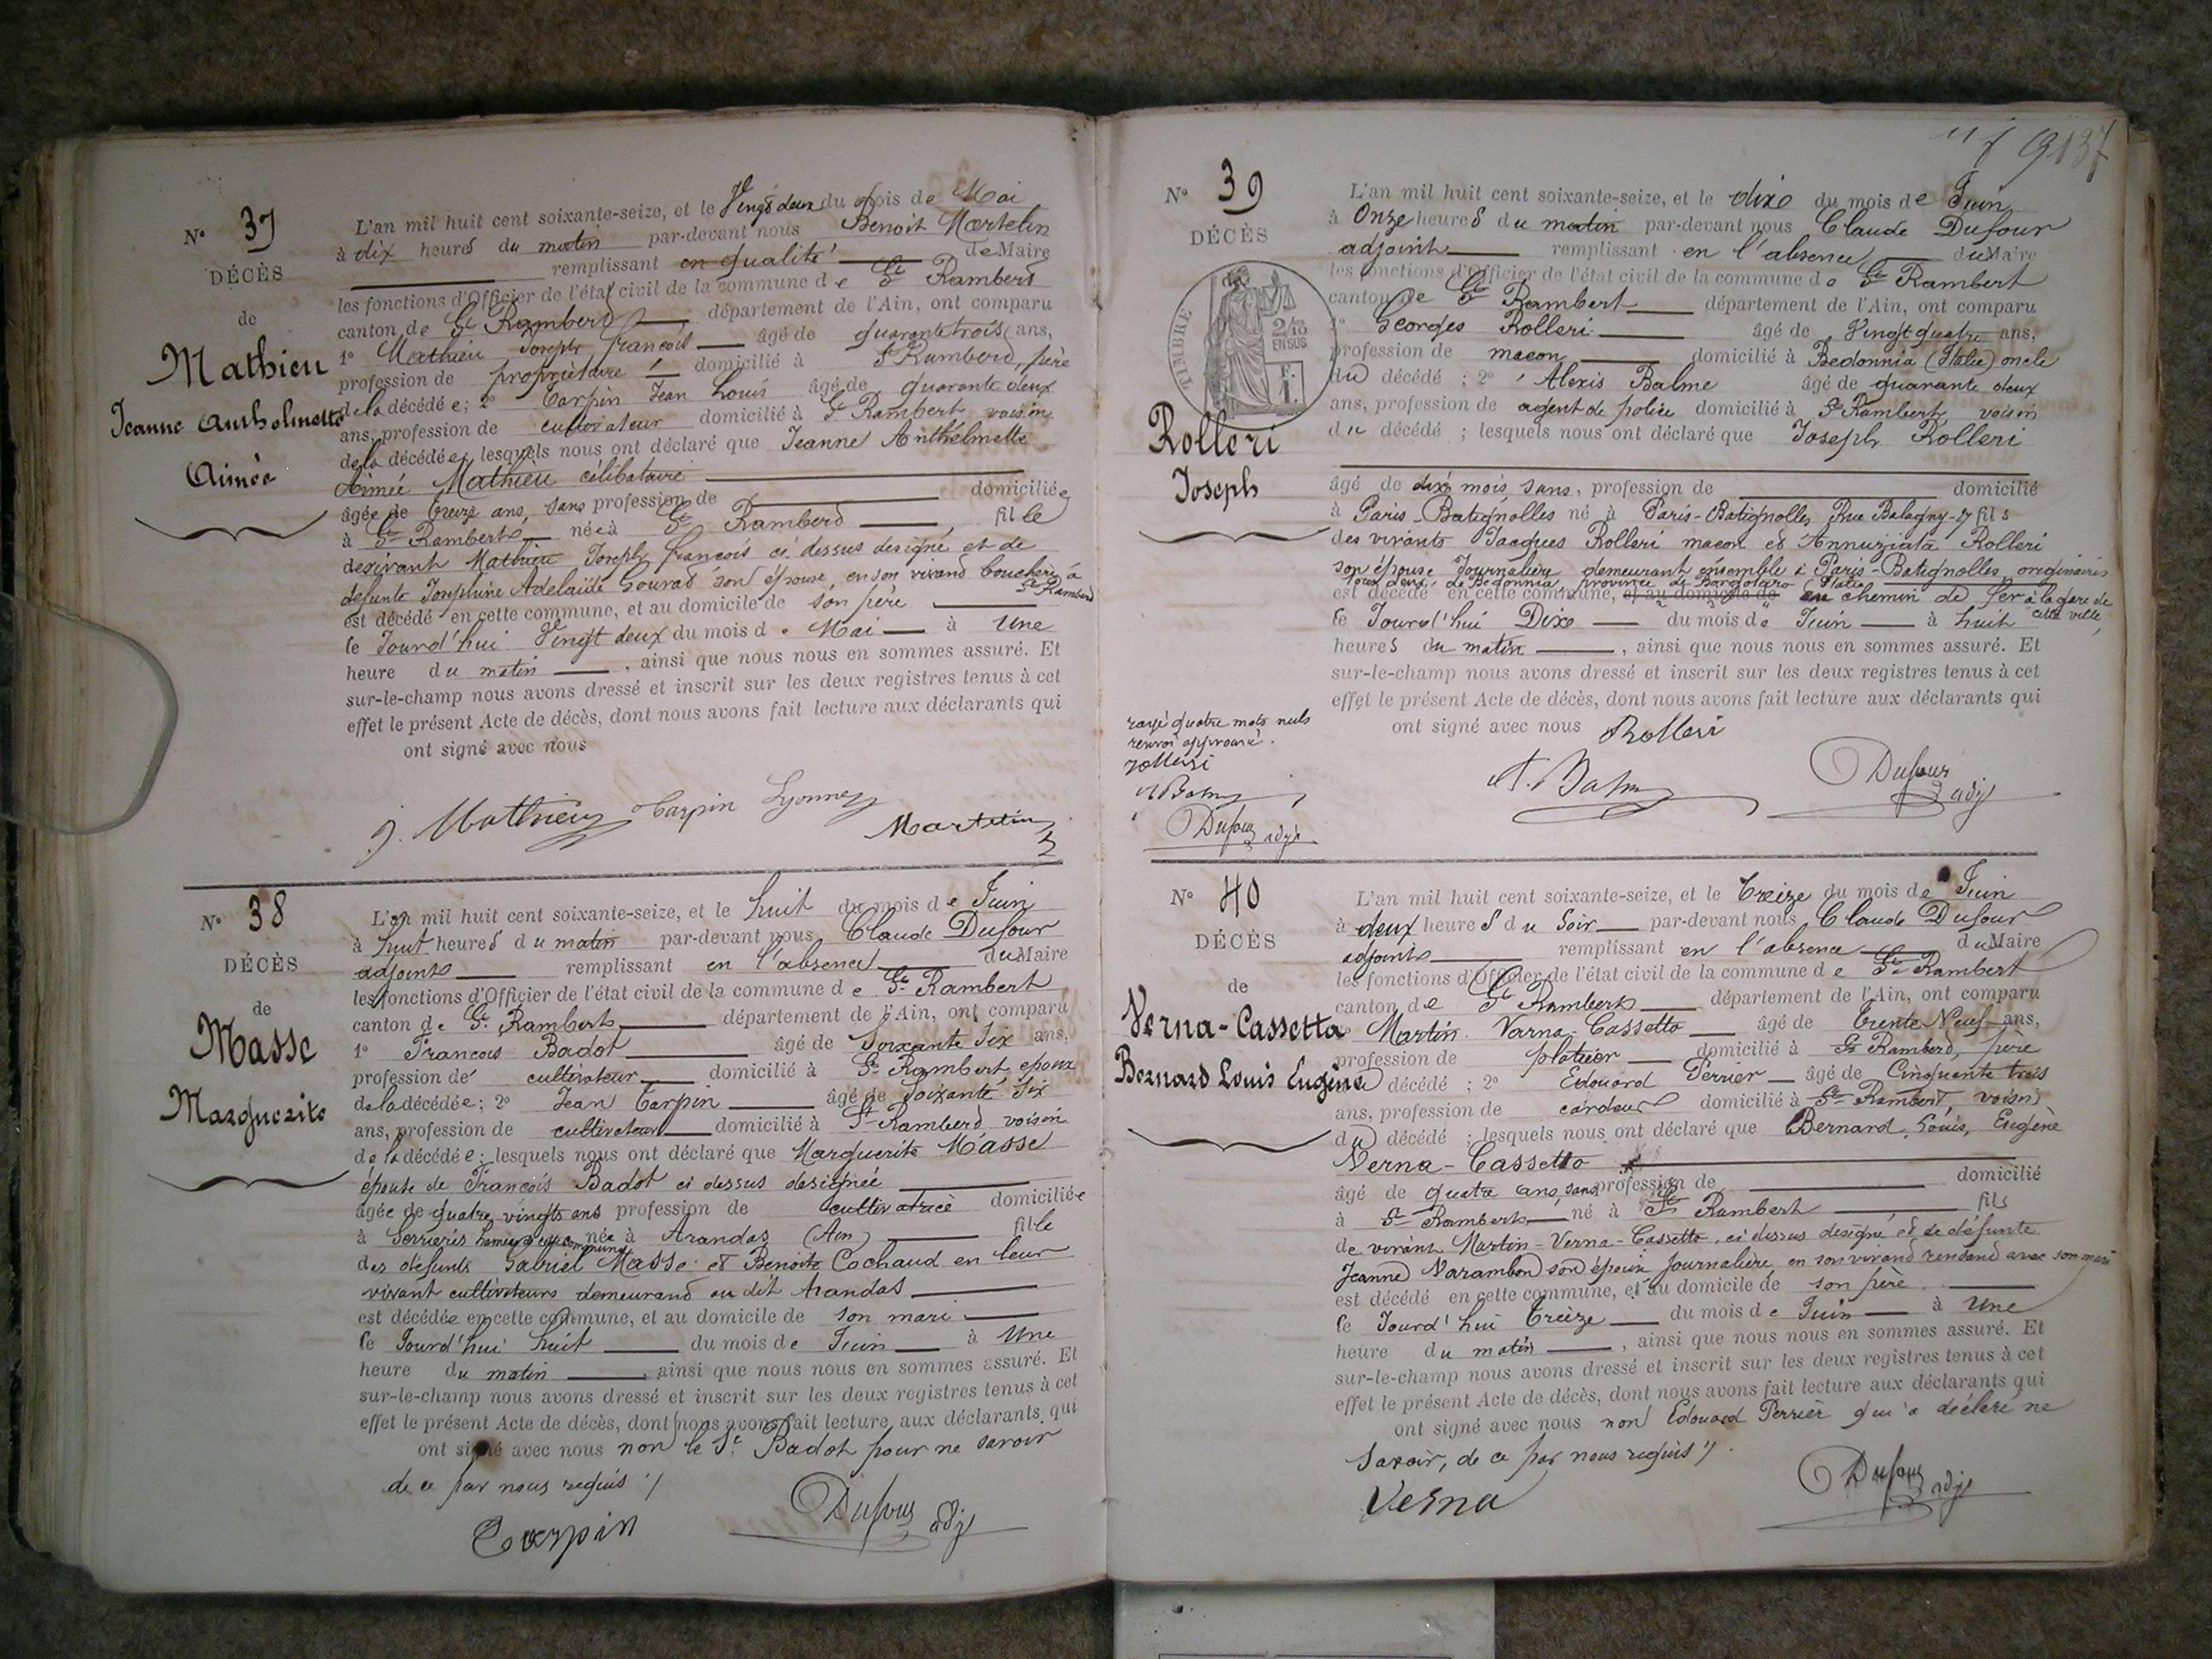 N° 37
DÉCÈS
de
Mathieu
Jeanne Anthelmette
Aimée
L'an mil huit cent soixante-seize, et le Vingt deux du mois de Mai
à dix heures du matin par-devant nous Benoit Martelin
remplissant en qualité de Maire
les fonctions d'Officier de l'état civil de la commune de St Rambert
canton de St Rambert département de l'Ain, ont comparu
1° Mathieu Joseph françois âgé de quarante trois ans,
profession de propriétaire domicilié à St Rambert, père
de la décédée; 2° Carpin Jean Louis âgé de quarante deux
ans, profession de cultivateur domicilié à St Rambert voisin
de la décédée; lesquels nous ont déclaré que Jeanne Anthelmette
Aimée Mathieu célibataire
âgée de treize ans, sans profession de domiciliée
à St Rambert née à St Rambert, fille
de vivant Mathieu Joseph françois ci dessus designé et de
defunte Joséphine Adelaïde Gourad son épouse, en son vivant bouchère à
St Rambert
est décédé en cette commune, et au domicile de son père
le Jourd'hui Vingt deux du mois de Mai à Une
heure du matin, ainsi que nous nous en sommes assuré. Et
sur-le-champ nous avons dressé et inscrit sur les deux registres tenus à cet
effet le présent Acte de décès, dont nous avons fait lecture aux déclarants qui
ont signé avec nous
J. Mathieu Carpin Lyonnez
Martelin
N° 38
DÉCÈS
de
Masse
Marguerite
L'an mil huit cent soixante-seize, et le huit du mois de Juin
à huit heures du matin par-devant nous Claude Dufour
adjoint remplissant en l'absence du Maire
les fonctions d'Officier de l'état civil de la commune de St Rambert
canton de St Rambert département de l'Ain, ont comparu
1° François Badot âgé de Soixante Six ans,
profession de cultivateur domicilié à St Rambert epoux
de la décédée; 2° Jean Carpin âgé de Soixante Six
ans, profession de cultivateur domicilié à St Rambert voisin
de la décédée; lesquels nous ont déclaré que Marguerite Masse
épouse de François Badot ci dessus designée
âgée de quatre vingts ans profession de cultivatrice domiciliée
à Serrières hameau de cette commune née à Arandas (Ain) fille
des defunts Gabriel Masse et Benoite Cochaud en leur
vivant cultivateurs demeurand au dit Arandas
est décédée en cette commune, et au domicile de son mari
le Jourd'hui huit du mois de Juin à Une
heure du matin, ainsi que nous nous en sommes assuré. Et
sur-le-champ nous avons dressé et inscrit sur les deux registres tenus à cet
effet le présent Acte de décès, dont nous avons fait lecture aux déclarants qui
ont signé avec nous non le Sr Badot pour ne savoir
de ce par nous requis
Carpin
Dufour adjt
137
N° 39
DÉCÈS
TIMBRE
2/10
EN SUS
F.
1.
Rolleri
Joseph
L'an mil huit cent soixante-seize, et le dixe du mois de Juin
à Onze heures du matin par-devant nous Claude Dufour
adjoint remplissant en l'absence du Maire
les fonctions d'Officier de l'état civil de la commune de St Rambert
canton de St Rambert département de l'Ain, ont comparu
1° Georges Rolleri âgé de Vingt quatre ans,
profession de macon domicilié à Bedonnia (Italie) oncle
du décédé; 2° Alexis Balme âgé de quarante deux
ans, profession de agent de police domicilié à St Rambert, voisin
du décédé; lesquels nous ont déclaré que Joseph Rolleri
âgé de dix mois sans, profession de domicilié
à Paris-Batignolles né à Paris-Batignolles Rue Balagny-7 fils
des vivants Jacques Rolleri macon et Annuziata Rolleri
son épouse Journalière demeurant ensemble à Paris-Batignolles originaires
tous deux de Bedonnia province de Borgotaro (Italie)
est décédé en cette commune, et au domicile de au chemin de fer à la gare de
cette ville,
le Jourd'hui Dixe du mois de Juin à huit
heures du matin, ainsi que nous nous en sommes assuré. Et
sur-le-champ nous avons dressé et inscrit sur les deux registres tenus à cet
effet le présent Acte de décès, dont nous avons fait lecture aux déclarants qui
ont signé avec nous Rolleri
A. Balm
Dufour adjt
rayé quatre mots nuls
renvoi approuvé.
Rolleri
A Balm
Dufour adjt
N° 40
DÉCÈS
de
Verna-Cassetta
Bernard Louis Eugène
L'an mil huit cent soixante-seize, et le treize du mois de Juin
à deux heures du Soir par-devant nous Claude Dufour
adjoint remplissant en l'absence du Maire
les fonctions d'Officier de l'état civil de la commune de St Rambert
canton de St Rambert département de l'Ain, ont comparu
Martin Varna-Cassetto âgé de trente Neuf ans,
profession de platrier domicilié à St Rambert, père
décédé; 2° Edouard Perrier âgé de Cinquante trois
ans, profession de cardeur domicilié à St Rambert, voisin
du décédé; lesquels nous ont déclaré que Bernard, Louis, Eugène
Verna-Cassetto
âgé de quatre ans, sans profession de domicilié
à St Rambert né à St Rambert fils
de vivant Martin-Verna-Cassetto, ci dessus designé et de défunte
Jeanne Varambon son épouse Journalière, en son vivand residand avec son mari
est décédé en cette commune, et au domicile de son père
le Jourd'hui treize du mois de Juin à Une
heure du matin, ainsi que nous nous en sommes assuré. Et
sur-le-champ nous avons dressé et inscrit sur les deux registres tenus à cet
effet le présent Acte de décès, dont nous avons fait lecture aux déclarants qui
ont signé avec nous non Edouard Perrier qui a déclaré ne
savoir, de ce par nous requis
Verna
Dufour adjt